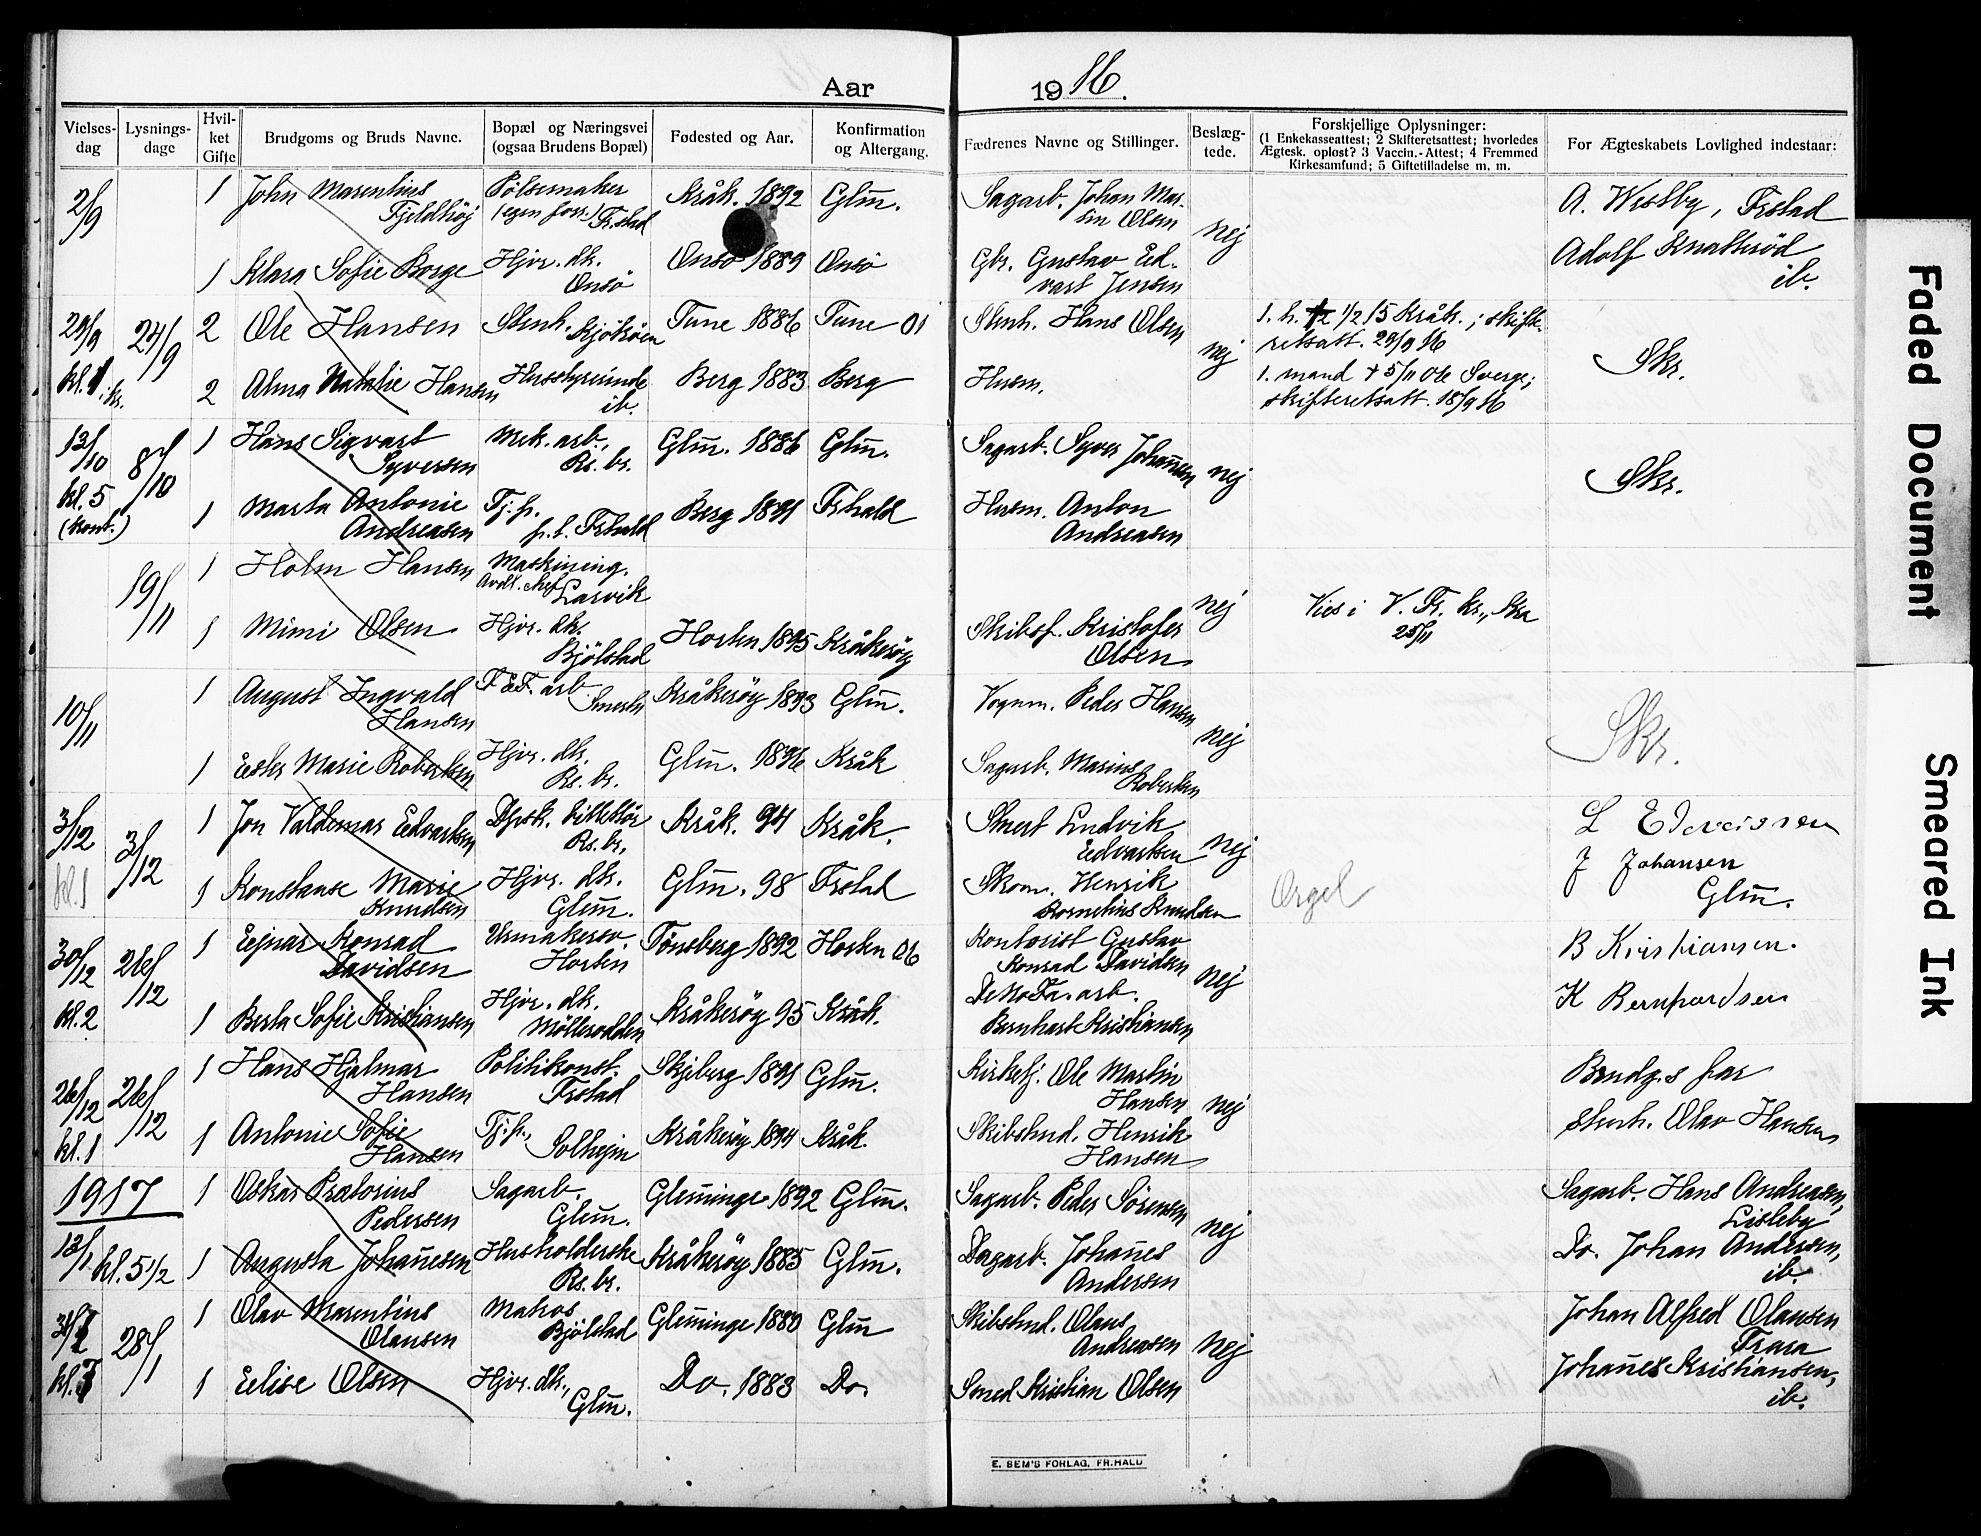 Aar 1916.
Vielsesdag
Lysningsdage
Hvilket Gifte
Brudgoms og Bruds Navne.
Bopæl og Næringsvei (ogsaa Brudens Bopæl)
Fødested og Aar.
Konfirmation og Altergang.
Fædrenes Navne og Stillinger.
Beslægtede.
Forskjellige Oplysninger:
(1 Enkekasseattest; 2 Skifteretsattest; hvorledes
Ægtesk. opløst? 3 Vaccin.-Attest; 4 Fremmed
Kirkesamfund; 5 Giftetilladelse m. m.
For Ægteskabets Lovlighed indestaar:
2/9 1 John Marentius Fjeldhöj Pölsemaker (egen forr.) Fr.stad Kråk. 1892 Glm̄. Sagarb. Johan Marsin Olsen nej A. Westby, Frstad
1 Klara Sofie Borge Hjvr. dtr. Onsö Onsö 1889 Onsö Gbr. Gustav Edvart Jensen Adolf Knatteröd ib.
29/9 24/9 2 Ole Hansen Stenh. Kjököen Tune 1886 Tune 01 Stenh. Hans Olsen nej 1. h. 1/2 15 Kråk.; skifteretsatt. 29/9 16 Skr.
kl. kr. 2 Alma Natalie Hansen Husstyrende ib. Berg 1883 Berg Husm. 1. mand + 5/11 Ole Sverge; skifteretsatt. 18/9 16
13/10 8/10 1 Hans Sigvart Syversen Mek. arb., Rs. br. Glm̄. 1886 Glm̄. Sagarb. Syver Johan̄sen nej Skr.
kl. 5 (kont.) 1 Marta Antonie Andreasen Tj.p. p.t. Frhald Berg 1891 Frhald Husm. Anton Andreasen
19/11 1 Holm Hansen Maskining. Avdl. chef Larvik nej Vies i V. Fr. kr., 25/11
1 Mimi Olsen Hjvr. dtr. Bjölstad Horten 1895 Kråkeröy Skibsf. Kristofer Olsen
10/11 1 August Ingvald Hansen F & F. arb. Smertu Kråkeröy 1893 Glm̄. Vognm. Peder Hansen nej Skr.
1 Ester Marie Robertsen Hjvr. dtr. Rs. br. Glm̄. 1896 Kråk Sagarb. Marius Robertsen
3/12 3/12 1 Jon Valdemar Edvartsen Dpsk. Rs. br. Kråk. 94 Kråk. Smert Ludvik Edvartsen nej L Edvarsen
kl. 1 1 Konstanse Marie Knudsen Hjvr. dtr. Glem̄. Glm̄. 98 Frstad Skom. Henrik Kornelius Knudsen Orgel J Johansen Glm̄.
30/12 26/12 1 Ejnar Konrad Davidsen Urmakersv. Horten Tönsberg 1892 Horten 06 Kontorist Gustav Konrad Davidsen nej B Kristiansen.
kl. 2 1 Berta Sofie Kristiansen Hjvr. dtr. Möllerodden Kråkeröy 95 Kråk. DeNoFa. arb. Bernhart Kristiansen K Bernhardsen
26/12 26/12 1 Hans Hjalmar Hansen Politikonst. Frstad Skjeberg 1891 Glm̄. Kirketj. Ole Martin Hansen nej Brudg.s far
kl. 1 1 Antonie Sofie Hansen Tj.p., Solhejm Kråkeröy 1894 Kråk. Skibstmd. Henrik Hansen Stenh. Olav Hansen
1917 1 Oskar Prætorius Pedersen Sagarb. Glem̄. Glem̄inge 1892 Glm̄. Sagarb. Peder Sörensen nej Sagarb. Hans Andreasen, Lisleby
13/1 kl. 5 1/2 1 Augusta Johan̄esen Husholderske Rs. br. Kråkeröy 1885 Glm̄. Dagarb. Johan̄es Andersen Do. Johan Andersen, ib.
28/1 1 Olav Marentius Olausen Matros Bjölstad Glem̄inge 1880 Glm̄ Skibstmd. Olaus Andreasen nej Johan Alfred Olausen Trara
kl. 1 Elise Olsen Hjvr. dtr., Glm̄. Do. 1883 Do. Smed Kristian Olsen Johan̄es Kristiansen, ib.
E. SEM'S FORLAG, FR.HALD
Faded Document
Smeared Ink